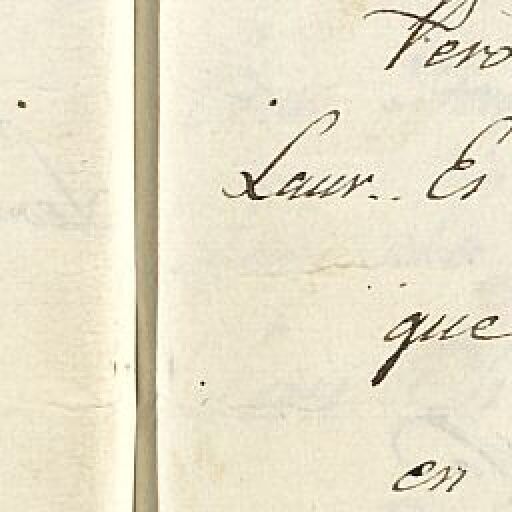 Pero
Laur.. Es
que
en